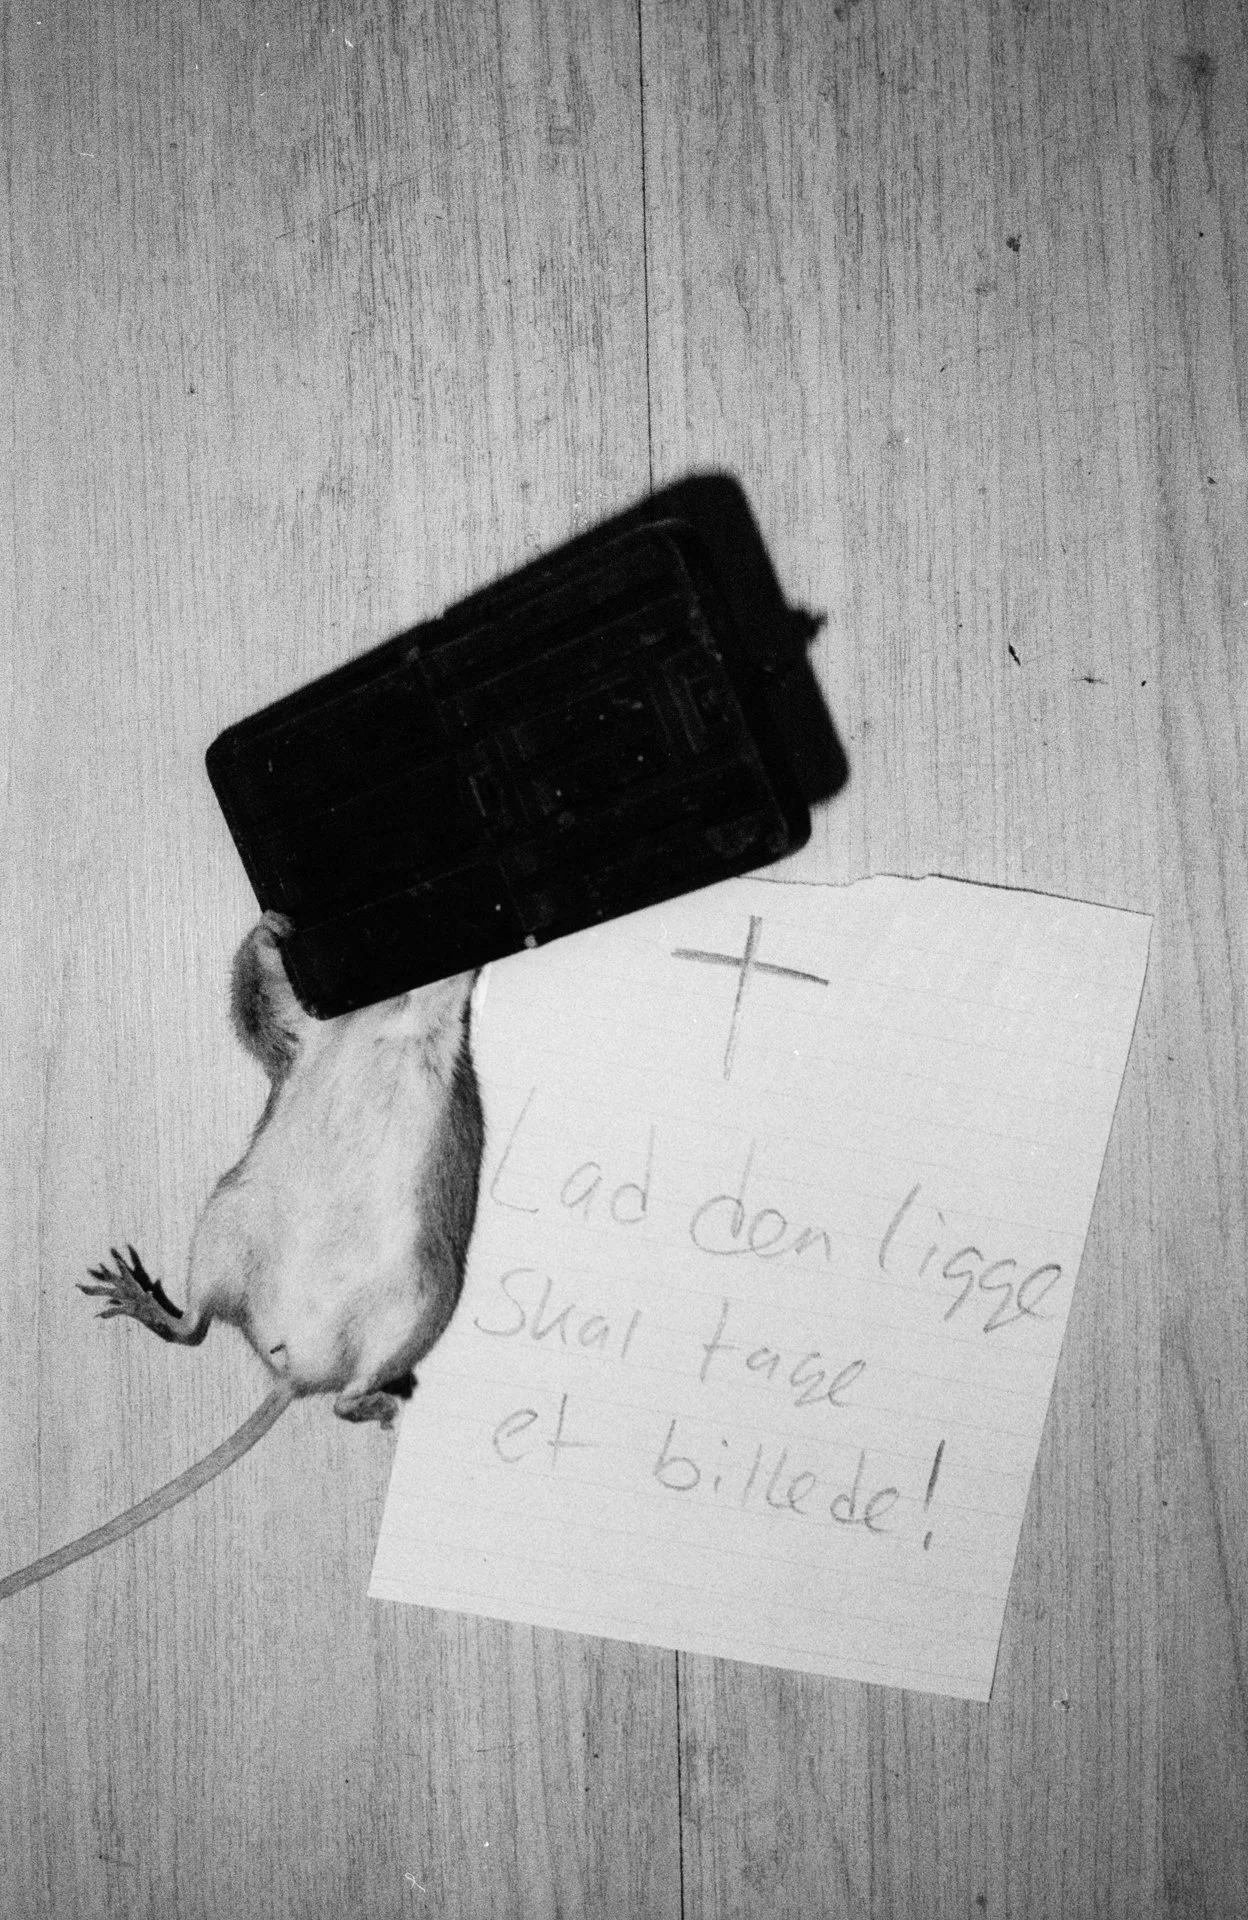 Lad den ligge
Skal tage
et billede!